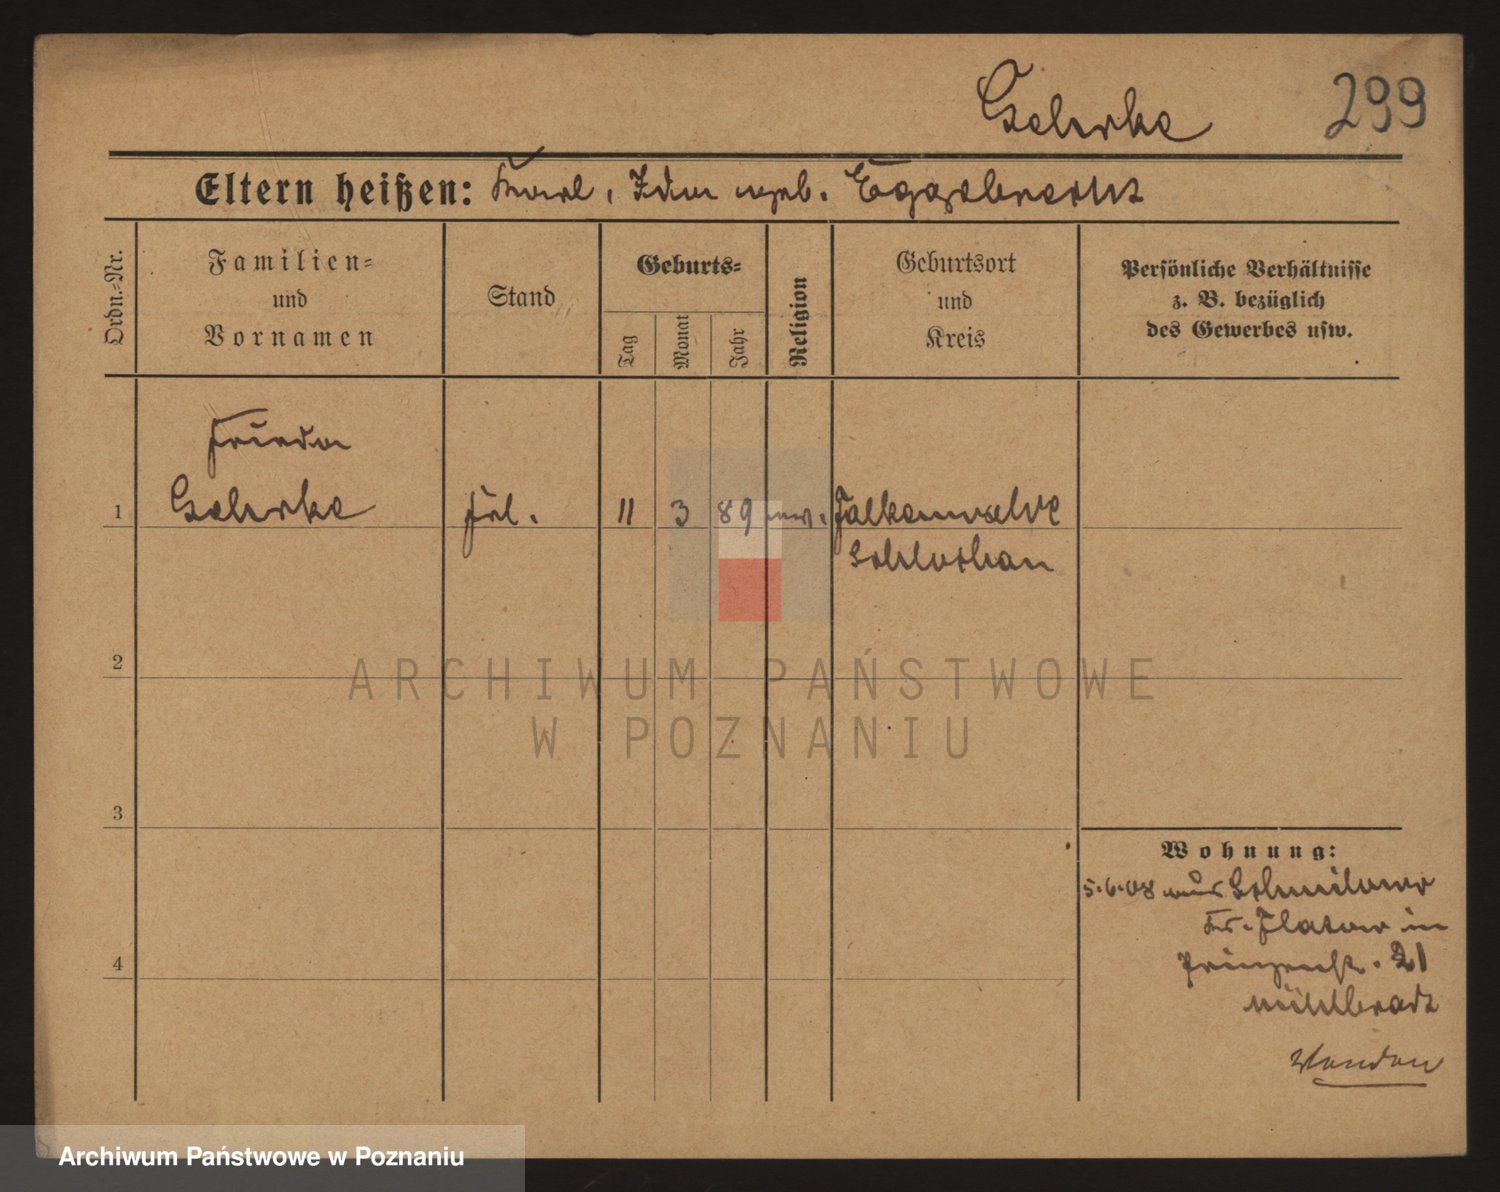 Gehrke 299
Eltern heißen: Karl, Ida geb. Eggebrecht
Ordn.-Nr.
Familien-
und
Vornamen
Stand
Geburts-
Tag
Monat
Jahr
Religion
Geburtsort
und
Kreis
Persönliche Verhältnisse
z. B. bezüglich
des Gewerbes usw.
Frieda
1 Gehrke Frl. 11 3 89 ev. Falkenwalde
Schlochau
2
ARCHIWUM PAŃSTWOWE
W POZNANIU
3
Wohnung:
5.6.08 aus Schmilowo
Kr. Flatow in
Prinzenstr. 21
Mühlbradt
4
Archiwum Państwowe w Poznaniu